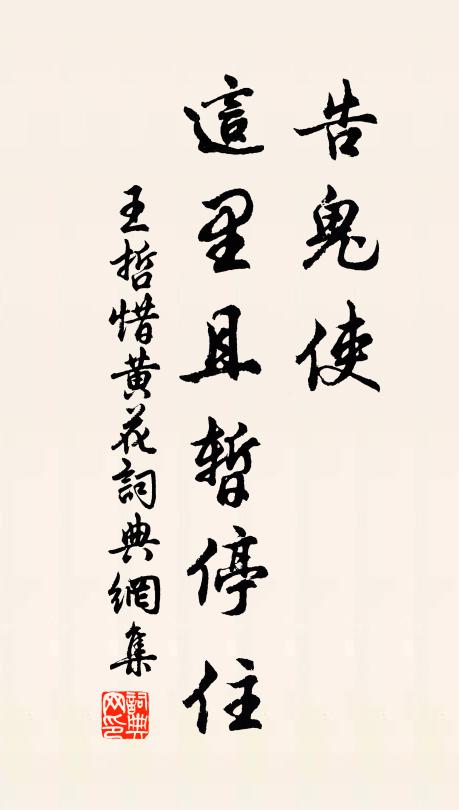 告鬼使
這里且暫停住
王哲惜黄花詞典網集
詞典
网印